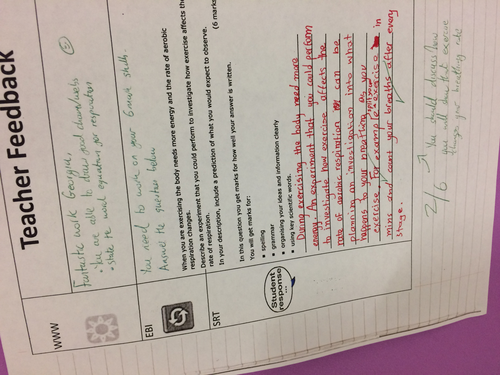 Teacher Feedback
WWW
Fantastic work Georgina,
• You are able to draw good diagrams/webs
• State the word equation for respiration
EBI
You need to work on your 6 mark skills.
Answer the question below
SRT
When you are exercising the body needs more energy and the rate of aerobic
respiration changes.
Describe an experiment that you could perform to investigate how exercise affects the
rate of respiration.
In your description, include a prediction of what you would expect to observe.
(6 marks
In this question you get marks for how well your answer is written.
You will get marks for:
• spelling
• grammar
• organising your ideas and information clearly
• using key scientific words.
Student
response:
During exercising the body need more
energy. An experiment that you could perform
to investigate how exercise affects the
rate of aerobic respiration can be
planning an investigation into what
happens to your breathing as you
exercise. For example exercise in
mins and count your breaths after every
stage.
2/6 → You should discuss how
you will show that exercise
changes your breathing rate